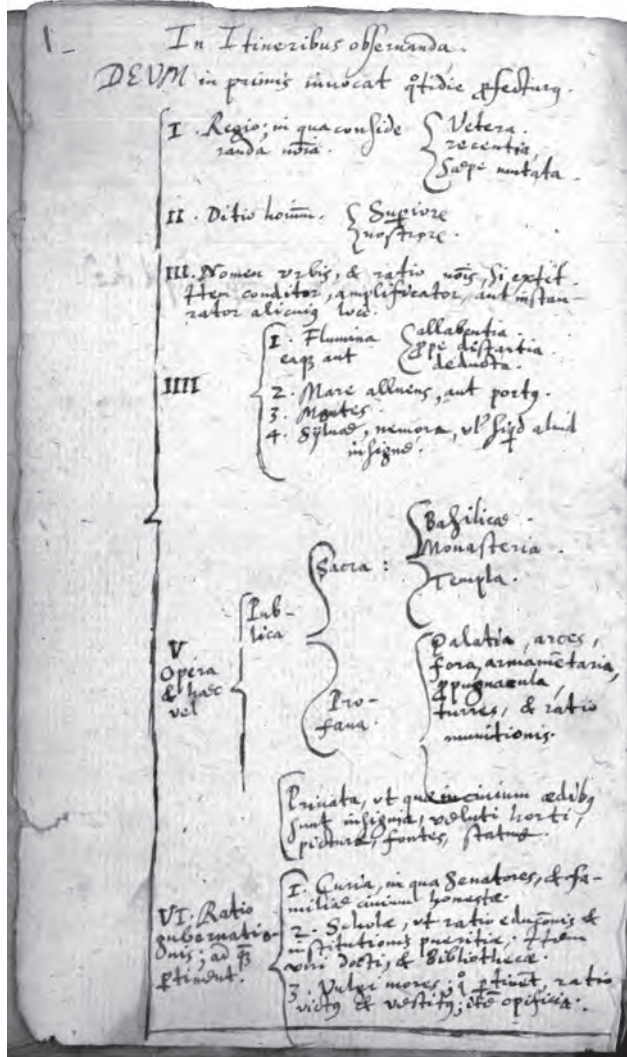 1_
In Itineribus obseruanda.
DEVM in primis inuocat q̊tidie ꝓfecturꝰ.
I. Regio; in qua conside
randa nōīa.
Vetera.
recentia,
Sæpe mutata.
II. Ditio hoīm.
Supiore
nostrore.
III. Nomen vrbis, & ratio nōīs, si extit.
Item conditor, amplificator, aut instau-
rator alicuiꝰ loci.
IIII
1. Flumina
eaqꝫ aut
allabentia.
ꝓpe distantia
deducta.
2. Mare alluens, aut portꝰ.
3. Montes.
4. Syluæ, nemora, vl' siqd aliud
insigne.
V
Opera
& hæc
vel
Pub-
lica
Sacra:
Basilicæ.
Monasteria.
Templa.
Pro-
fana.
Palatia, arces,
fora, armamētaria,
ꝓpugnacula,
turres, & ratio
munitionis.
Priuata, vt quæ in ciuium ædibꝰ
sunt insignia, veluti horti,
picturæ, fontes, statuæ.
VI. Ratio
gubernatio-
nis; ad qꝫ
ꝑtinent.
1. Curia, in qua Senatores, & fa-
miliæ ciuium honestæ.
2. Scholæ, vt ratio educōnis &
institutionis pueritiæ; Item
viri docti, & Bibliothecæ.
3. Vulgi mores; q̊ ꝑtinēt, ratio
victꝰ & vestitꝰ; itē opificia.